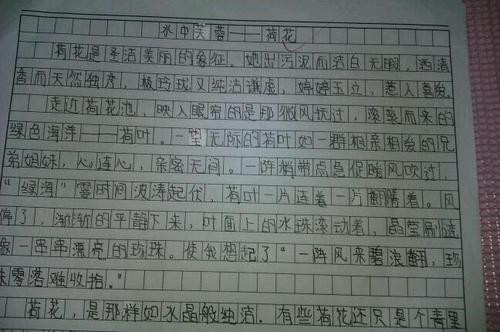 水中芙蓉——荷花
荷花是圣洁美丽的象征。她出污泥而洁白无暇,洒清
香而天然独度,极玲珑又纯洁谦虚,婷婷玉立,惹人喜爱。
走近荷花池,映入眼帘的是那微风抚过,滚滚而来的
绿色海洋——荷叶。一望无际的荷叶如一群相亲相爱的兄
弟姐妹,心连心,亲密无间。一阵稍带点急促暖风吹过,
“绿海”霎时间波涛起伏,荷叶一片连着一片翻腾着。风
停了,渐渐的平静下来,叶面上的水珠滚动着,晶莹剔透
象一串串漂亮的珍珠。使我想起了“一阵风来碧浪翻,珍
珠零落难收拾。”
荷花,是那样如水晶般纯洁。有些荷花还只是个青里